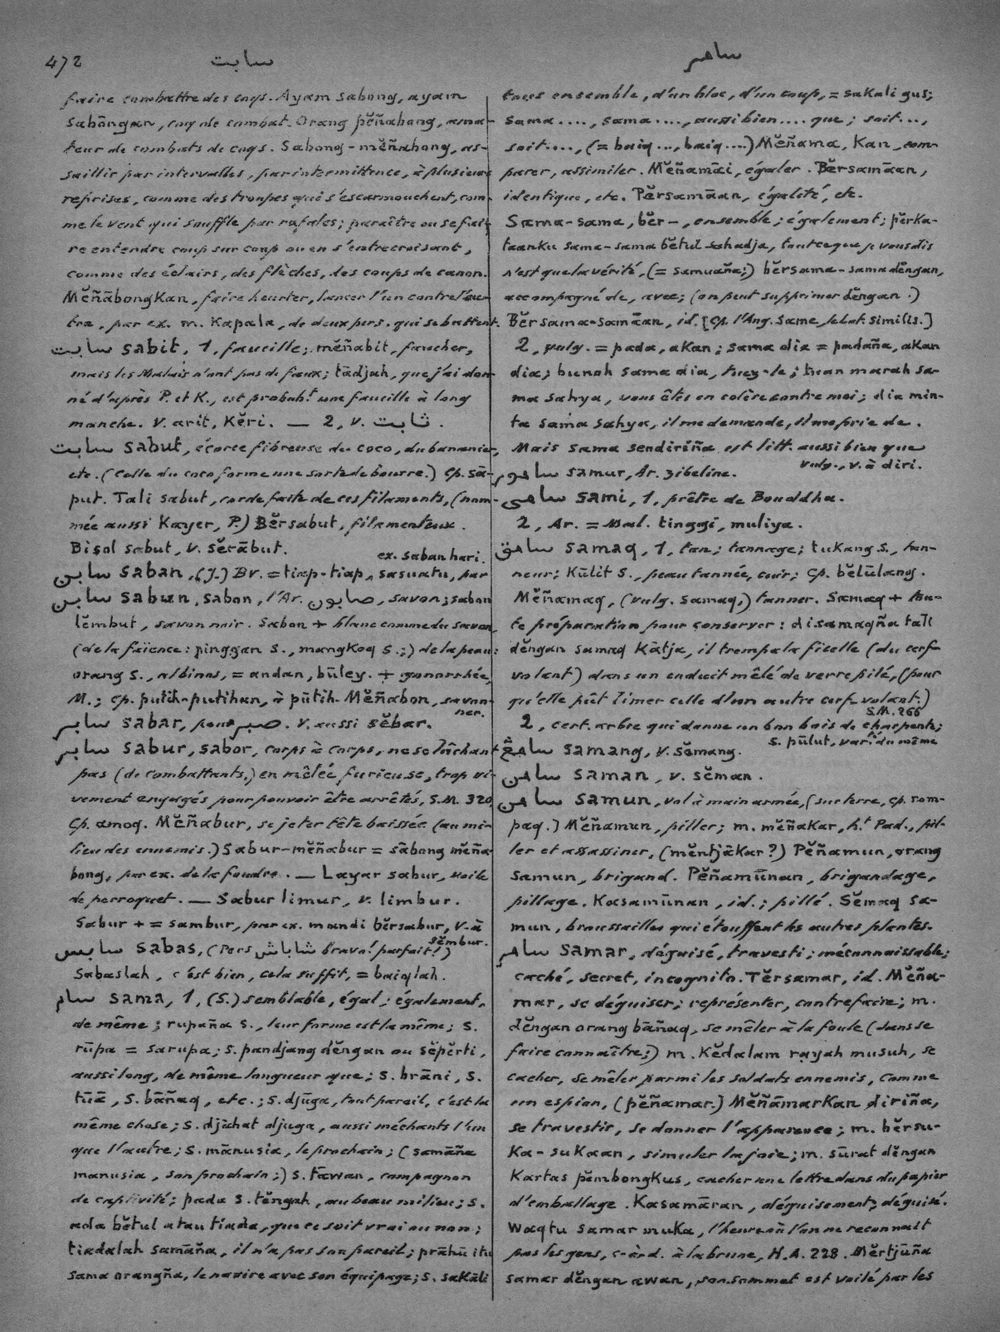 472
سابت
سامر
faire combattre des coqs. Ayam sabong, ayam
sabāngan, coq de combat. Orang pĕñabong, ama-
teur de combats de coqs. Sabong-mĕñabong, as-
saillir par intervalles, par intermittence, à plusieurs
reprises, comme des troupes qui s'escarmouchent, com-
me le vent qui souffle par rafales; paraître ou se fai-
re entendre coup sur coup ou en s'entrecroisant,
comme des éclairs, des flèches, des coups de canon.
Mĕñābongkan, faire heurter, lancer l'un contre l'au-
tre, par ex. m. kapala, de deux pers. qui se battent.
سابت sabit, 1, faucille; mĕñabit, faucher,
mais les Malais n'ont pas de faux; tādjah, que j'ai don-
né d'après P. et K., est probabt. une faucille à long
manche. V. arit, kĕri. — 2, v. ثابت.
سابت sabut, écorce fibreuse du coco, du bananier,
etc. (Celle du coco forme une sorte de bourre.) Cp. sā-
put. Tali sabut, corde faite de ces filaments, (nom-
mée aussi Kayer, P.) Bĕrsabut, filamenteux.
Bisol sabut, v. sĕrābut.
ex. saban hari.
سابن saban, (J.) Br. = tiap-tiap, sasuatu, par
سابن sabun, sabon, l'Ar. صابون, savon; sabon
lĕmbut, savon noir. Sabon + blanc comme du savon,
(de la faïence: pinggan s., mangkoq s.;) de la peau:
orang s., albinos, = andan, būley. + gonorrhée,
M.; cp. putih-putihan, à pūtih. Mĕñabon, savon-
ner.
سابر sabar, pour صبر. v. aussi sĕbar.
سابر sabur, sabor, corps à corps, ne se lâchant
pas (de combattants,) en mêlée furieuse, trop vi-
vement engagés pour pouvoir être arrêtés, S.M. 320
Cp. amoq. Mĕñabur, se jeter tête baissée (au mi-
lieu des ennemis.) Sabur-mĕñabur = sābong mĕña-
bong, par ex. de la foudre. — Layar sabur, voile
de perroquet. — Sabur limur, v. limbur.
Sabur + = sambur, par ex. mandi bĕrsabur, v. à
sĕmbur.
سابس sabas, (Pers شاباش bravo! parfait!)
Sabaslah, c'est bien, cela suffit, = baiqlah.
سام sama, 1, (S.) semblable, égal; également,
de même; rupaña s., leur forme est la même; s.
rūpa = sarupa; s. pandjang dĕngan ou sĕpĕrti,
aussi long, de même longueur que; s. brāni, s.
tūā, s. bāñaq, etc.; s. djūga, tout pareil, c'est la
même chose; s. djāhat djuga, aussi méchants l'un
que l'autre; s. mānusia, le prochain; (samāña
manusia, son prochain;) s. tāwan, compagnon
de captivité; pada s. tĕngah, au beau milieu; s.
ada bĕtul atau tiada, que ce soit vrai ou non;
tiadalah samāña, il n'a pas son pareil; prāhū itu
sama orangña, le navire avec son équipage; s. sakāli
tous ensemble, d'un bloc, d'un coup, = sakali gus;
sama ...., sama ...., aussi bien .... que; soit ...,
soit ...., (= baiq ..., baiq ....) Mĕñama, kan, com-
parer, assimiler. Mĕñamāi, égaler. Bĕrsamāan,
identique, etc. Pĕrsamāan, égalité, etc.
Sama-sama, bĕr-, ensemble; également; pĕrka-
taanku sama-sama bĕtul sahadja, tout ce que je vous dis
n'est que la vérité, (= samuāña;) bĕrsama-sama dĕngan,
accompagné de, avec; (on peut supprimer dĕngan.)
Bĕrsama-samāan, id. [Cp. l'Ang. same, le Lat. similis.]
2, vulg. = pada, akan; sama dia = padaña, akan
dia; bunoh sama dia, tuez-le; tuan marah sa-
ma sahya, vous êtes en colère contre moi; dia min-
ta sama sahya, il me demande, il me prie de.
Mais sama sendiriña est litt. aussi bien que
vulg., v. à diri.
سامور samur, Ar. zibeline.
سامى sami, 1, prêtre de Bouddha.
2, Ar. = Mal. tinggi, muliya.
سامق samaq, 1, tan; tannage; tukang s., tan-
neur; Kūlit s., peau tannée, cuir; cp. bĕlūlang.
Mĕñamaq, (vulg. samaq,) tanner. Samaq + tou-
te préparation pour conserver: disamaqña tali
dĕngan samaq kātja, il trempa la ficelle (du cerf
volant) dans un enduit mêlé de verre pilé, (pour
qu'elle pût limer celle d'un autre cerf volant.)
S.M. 266
2, cert. arbre qui donne un bon bois de charpente;
s. pūlut, var. du même
سامڠ samang, v. sĕmang.
سامن saman, v. sĕman.
سامن samun, vol à main armée, (sur terre, cp. rom-
paq.) Mĕñamun, piller; m. mĕñakar, h.t Pad., pil-
ler et assassiner, (mĕntjākar?) Pĕñamun, orang
samun, brigand. Pĕñamūnan, brigandage,
pillage. Kasamūnan, id.; pillé. Sĕmaq sa-
mun, broussailles qui étouffent les autres plantes.
سامر samar, déguisé, travesti; méconnaissable;
caché, secret, incognito. Tĕrsamar, id. Mĕña-
mar, se déguiser; représenter, contrefaire; m.
dĕngan orang bāñaq, se mêler à la foule (sans se
faire connaître;) m. kĕdalam rayah musuh, se
cacher, se mêler parmi les soldats ennemis, comme
un espion, (pĕñamar.) Mĕñāmarkan diriña,
se travestir, se donner l'apparence; m. bĕrsu-
ka-sukaan, simuler la joie; m. sūrat dĕngan
kartas pĕmbongkus, cacher une lettre dans du papier
d'emballage. Kasamāran, déguisement; déguisé.
Waqtu samar muka, l'heure où l'on ne reconnaît
pas les gens, c-à-d. à la brune, H.A. 228. Mĕrtjūña
samar dĕngan awan, son sommet est voilé par les